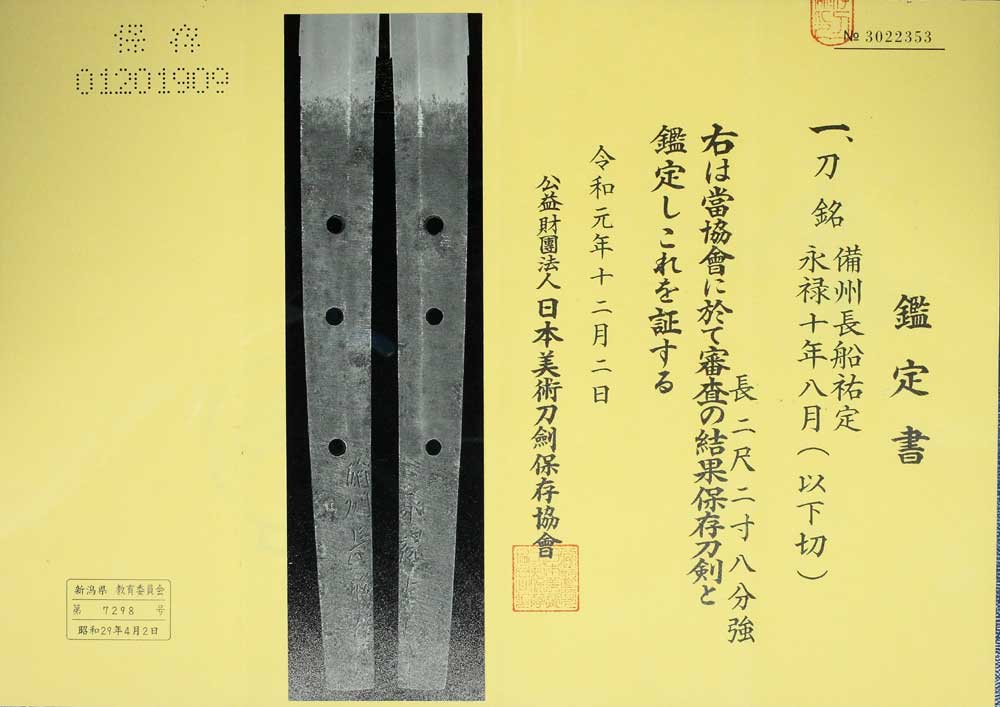 保存
01201909
№ 3022353
鑑定書
一、刀 銘 備州長船祐定
永禄十年八月(以下切)
長二尺二寸八分強
右は當協會に於て審査の結果保存刀剣と
鑑定しこれを証する
令和元年十二月二日
公益財團法人 日本美術刀劍保存協會
新潟県 教育委員会
第 7298 号
昭和29年4月2日